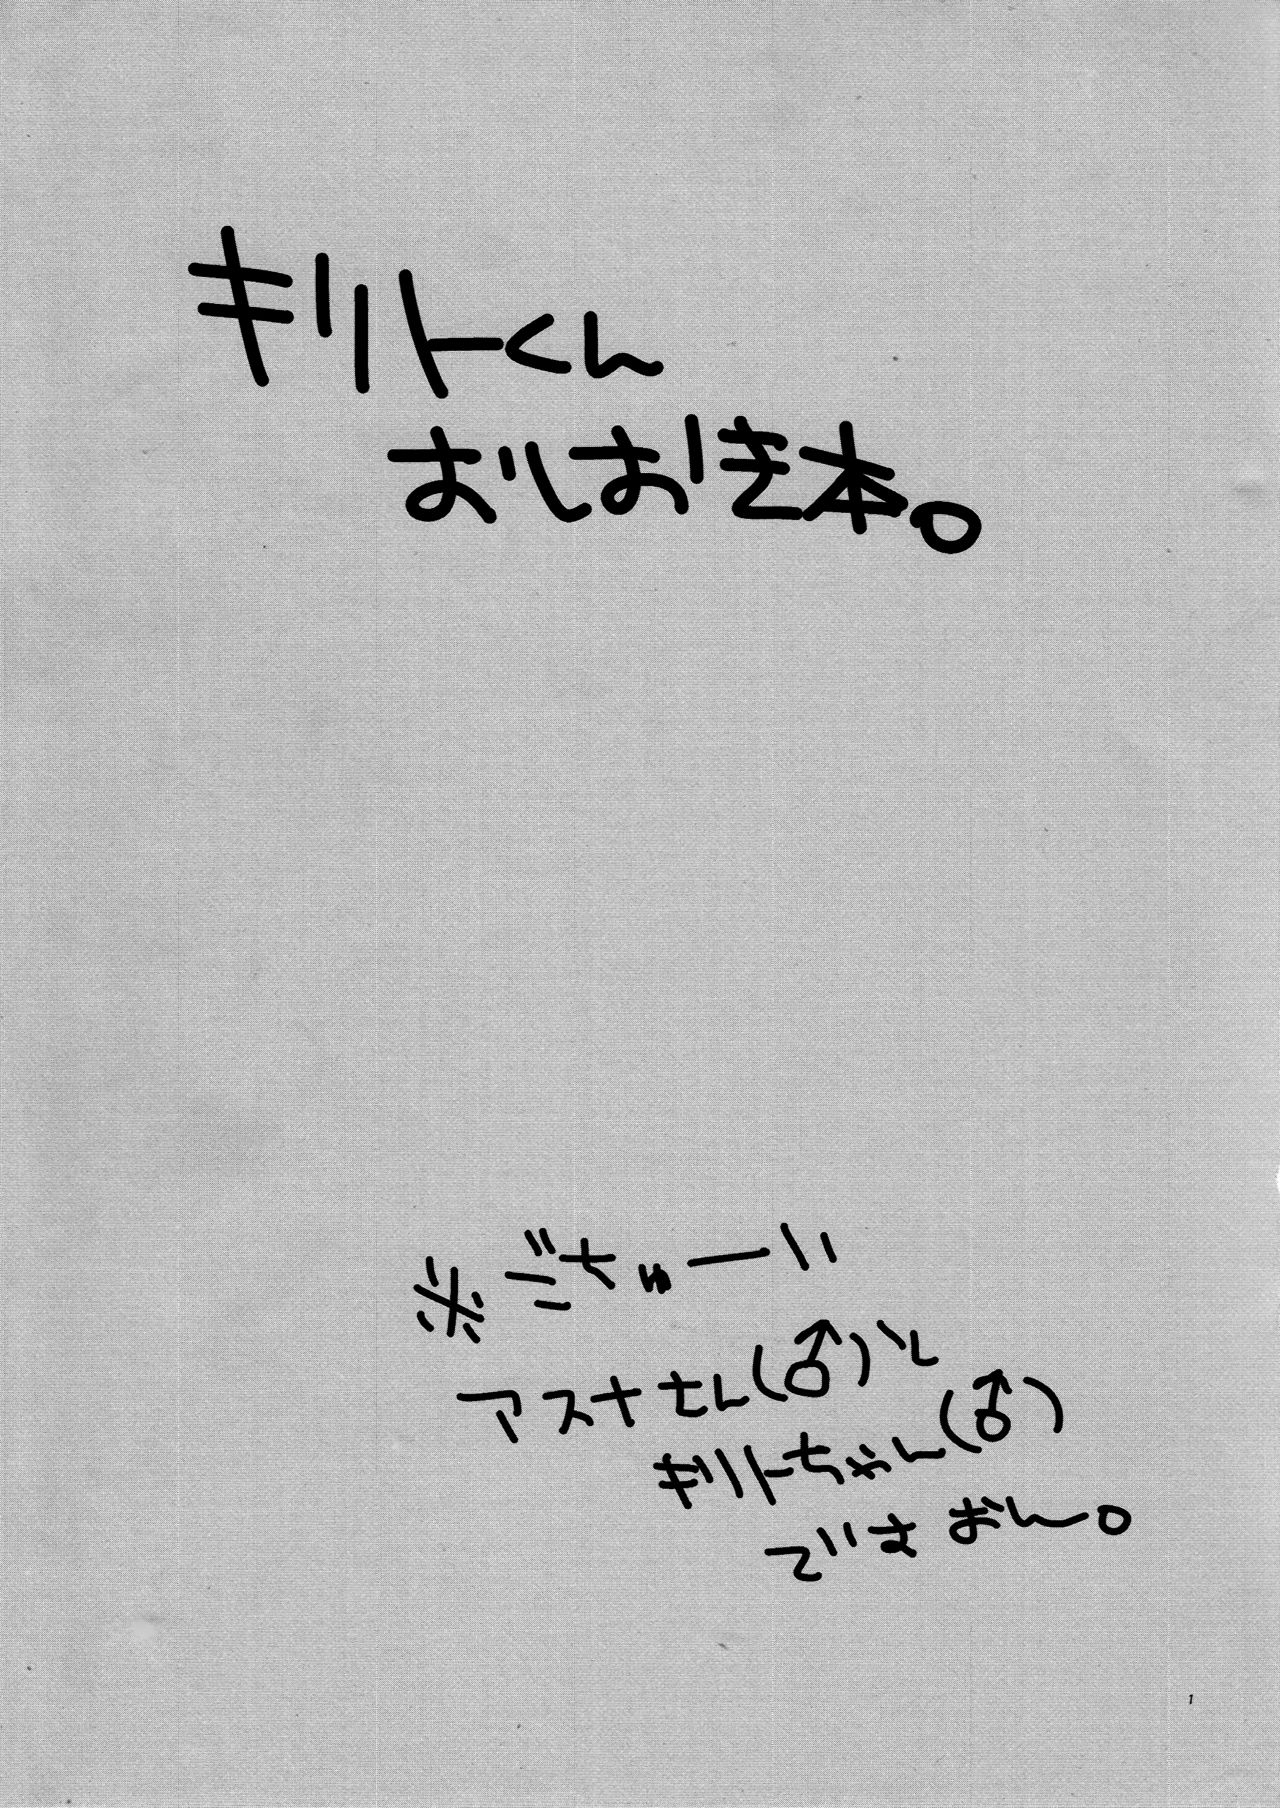 キリトくん
おしおき本。
※ごちゅーい
アスナさん(♂)と
キリトちゃん(♂)
でさおん。
1